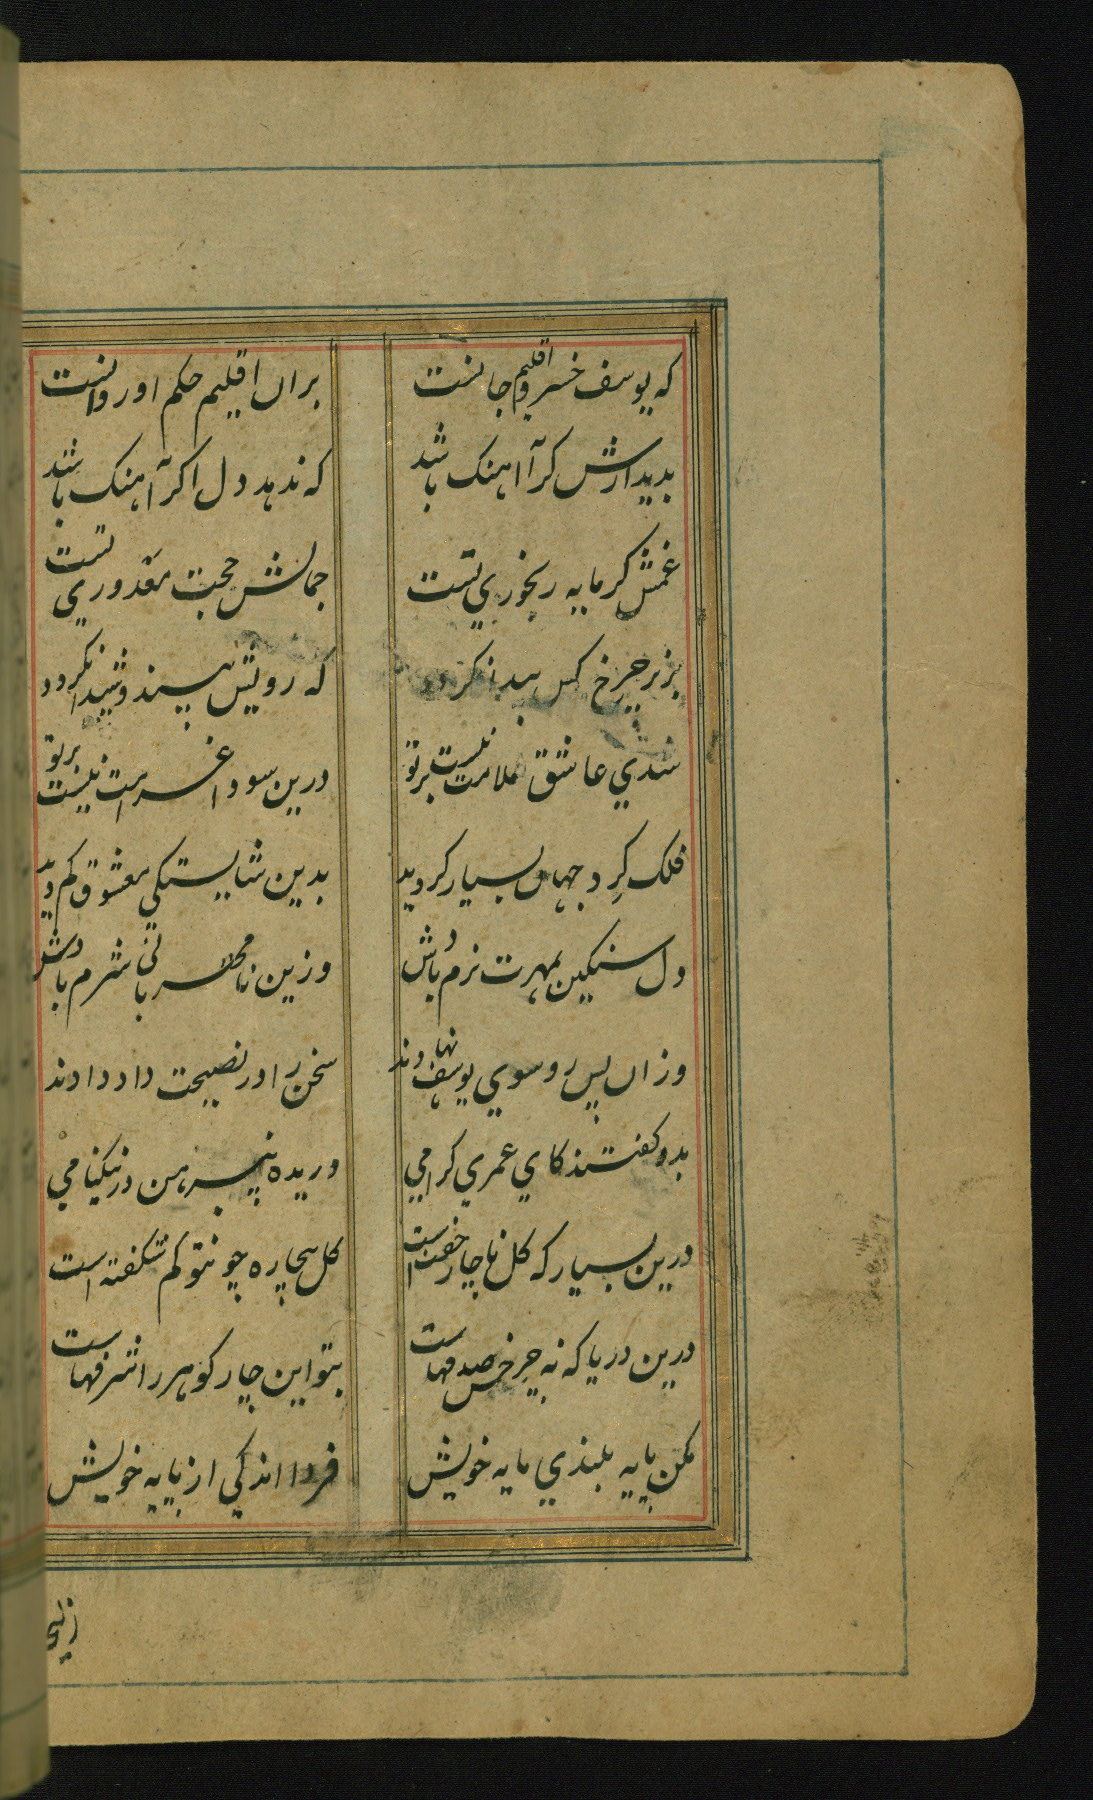 که یوسف خسرو اقلیم جانست
بران اقلیم حکم او روانست
بدیدارش کرآهنک باشد
که ندهد دل اکر آهنک باشد
غمش کر مایه رنجوری تست
جمالش حجت معذوری تست
بزیر چرخ کس پیدا نکردد
که رویش بیند و شیدا نکردد
شدی عاشق ملامت نیست برتو
درین سودا غرامت نیست برتو
فلک کرد جهان بسیار کردید
بدین شایستکی معشوق کم دید
دل سنکین بمهرت نرم باد
وزین نامهربانی شرم بادش
وزان پس رو سوی یوسف نهادند
سخن را در نصیحت داد دادند
بدو کفتند کای عمری کرامی
دریده پیرهن در نیکنامی
درین بستان که کل با خار جفت است
کل بیخار چون تو کم شکفته است
درین دریا که نه چرخش صدفهاست
بتو این چار کوهر را شرفهاست
مکن پایه بلندی مایه خویش
فرود آ اندکی از پایه خویش
زلیخا